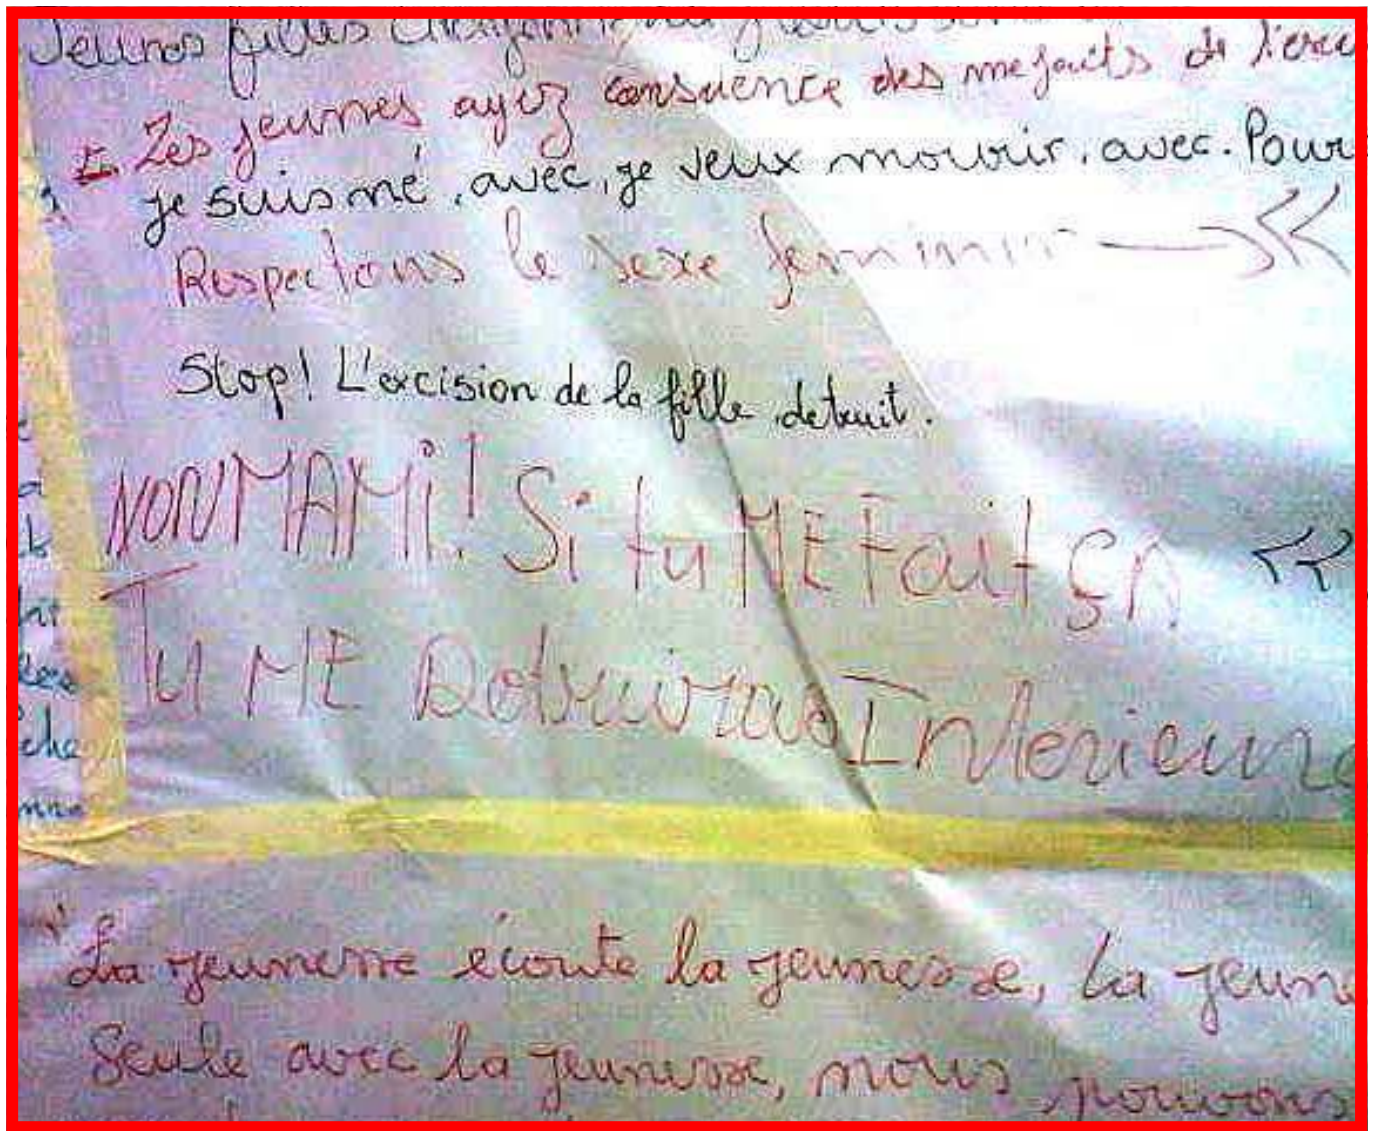 Jeunes filles
Les jeunes ayez consience des mefaits de l'exci
je suis né, avec, je veux mourir, avec. Pour
Respectons le sexe feminin → <<
Stop! L'excision de la fille detruit.
NON MAMi! Si tu ME Fait ça <<
TU ME Detruiras Interieure
La jeunesse écoute la jeunesse, la jeune
Seule avec la jeunesse, nous pouvons